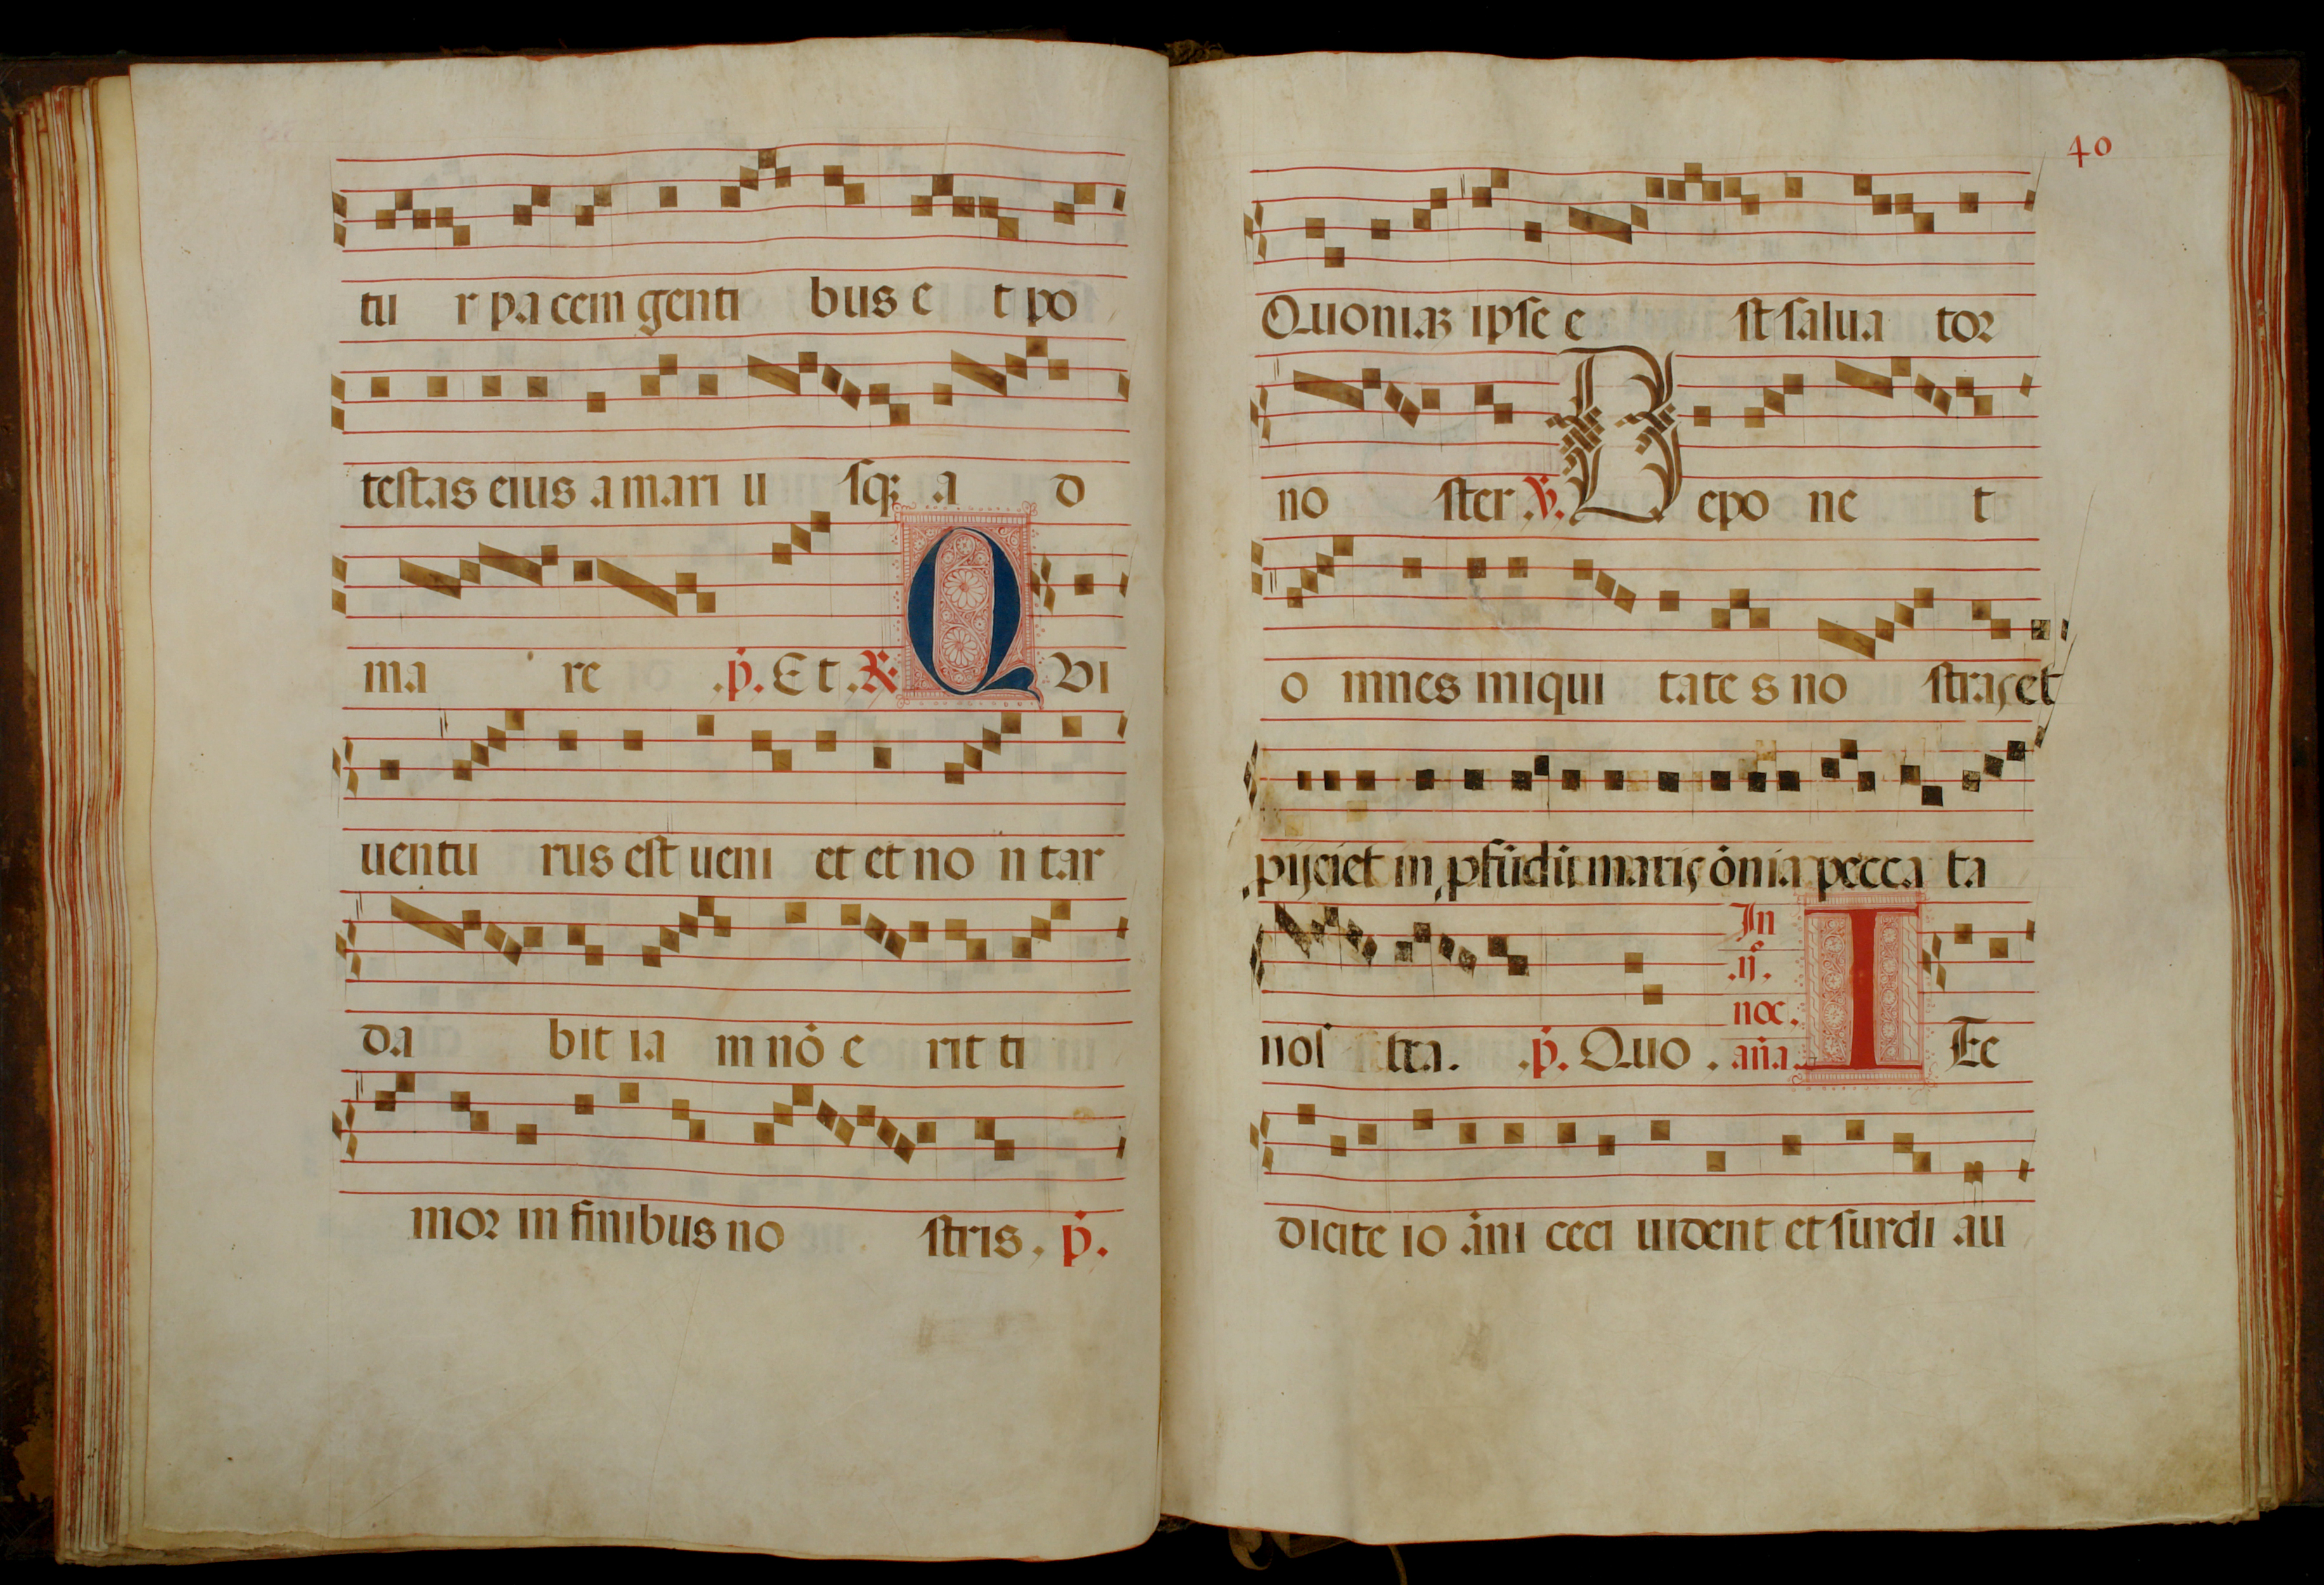 tu r pa cem genti bus e t po
testas eius a mari u sqꝫ a d
ma re .p̄. Et .℟. Q VI
uentu rus est ueni et et no n tar
da bit ia m nō e rit ti
mor in finibus no stris. p̄.
40
Quoniaꝫ ipse e st salua tor
no ster .℣. D epo ne t
o mnes iniqui tate s no stras et
pijciet in pfūdū maris ōnia pecca ta
nos tra. .p̄. Quo .
In
.ij.
noc.
aña. I Te
dicite io āni ceci uident et surdi au